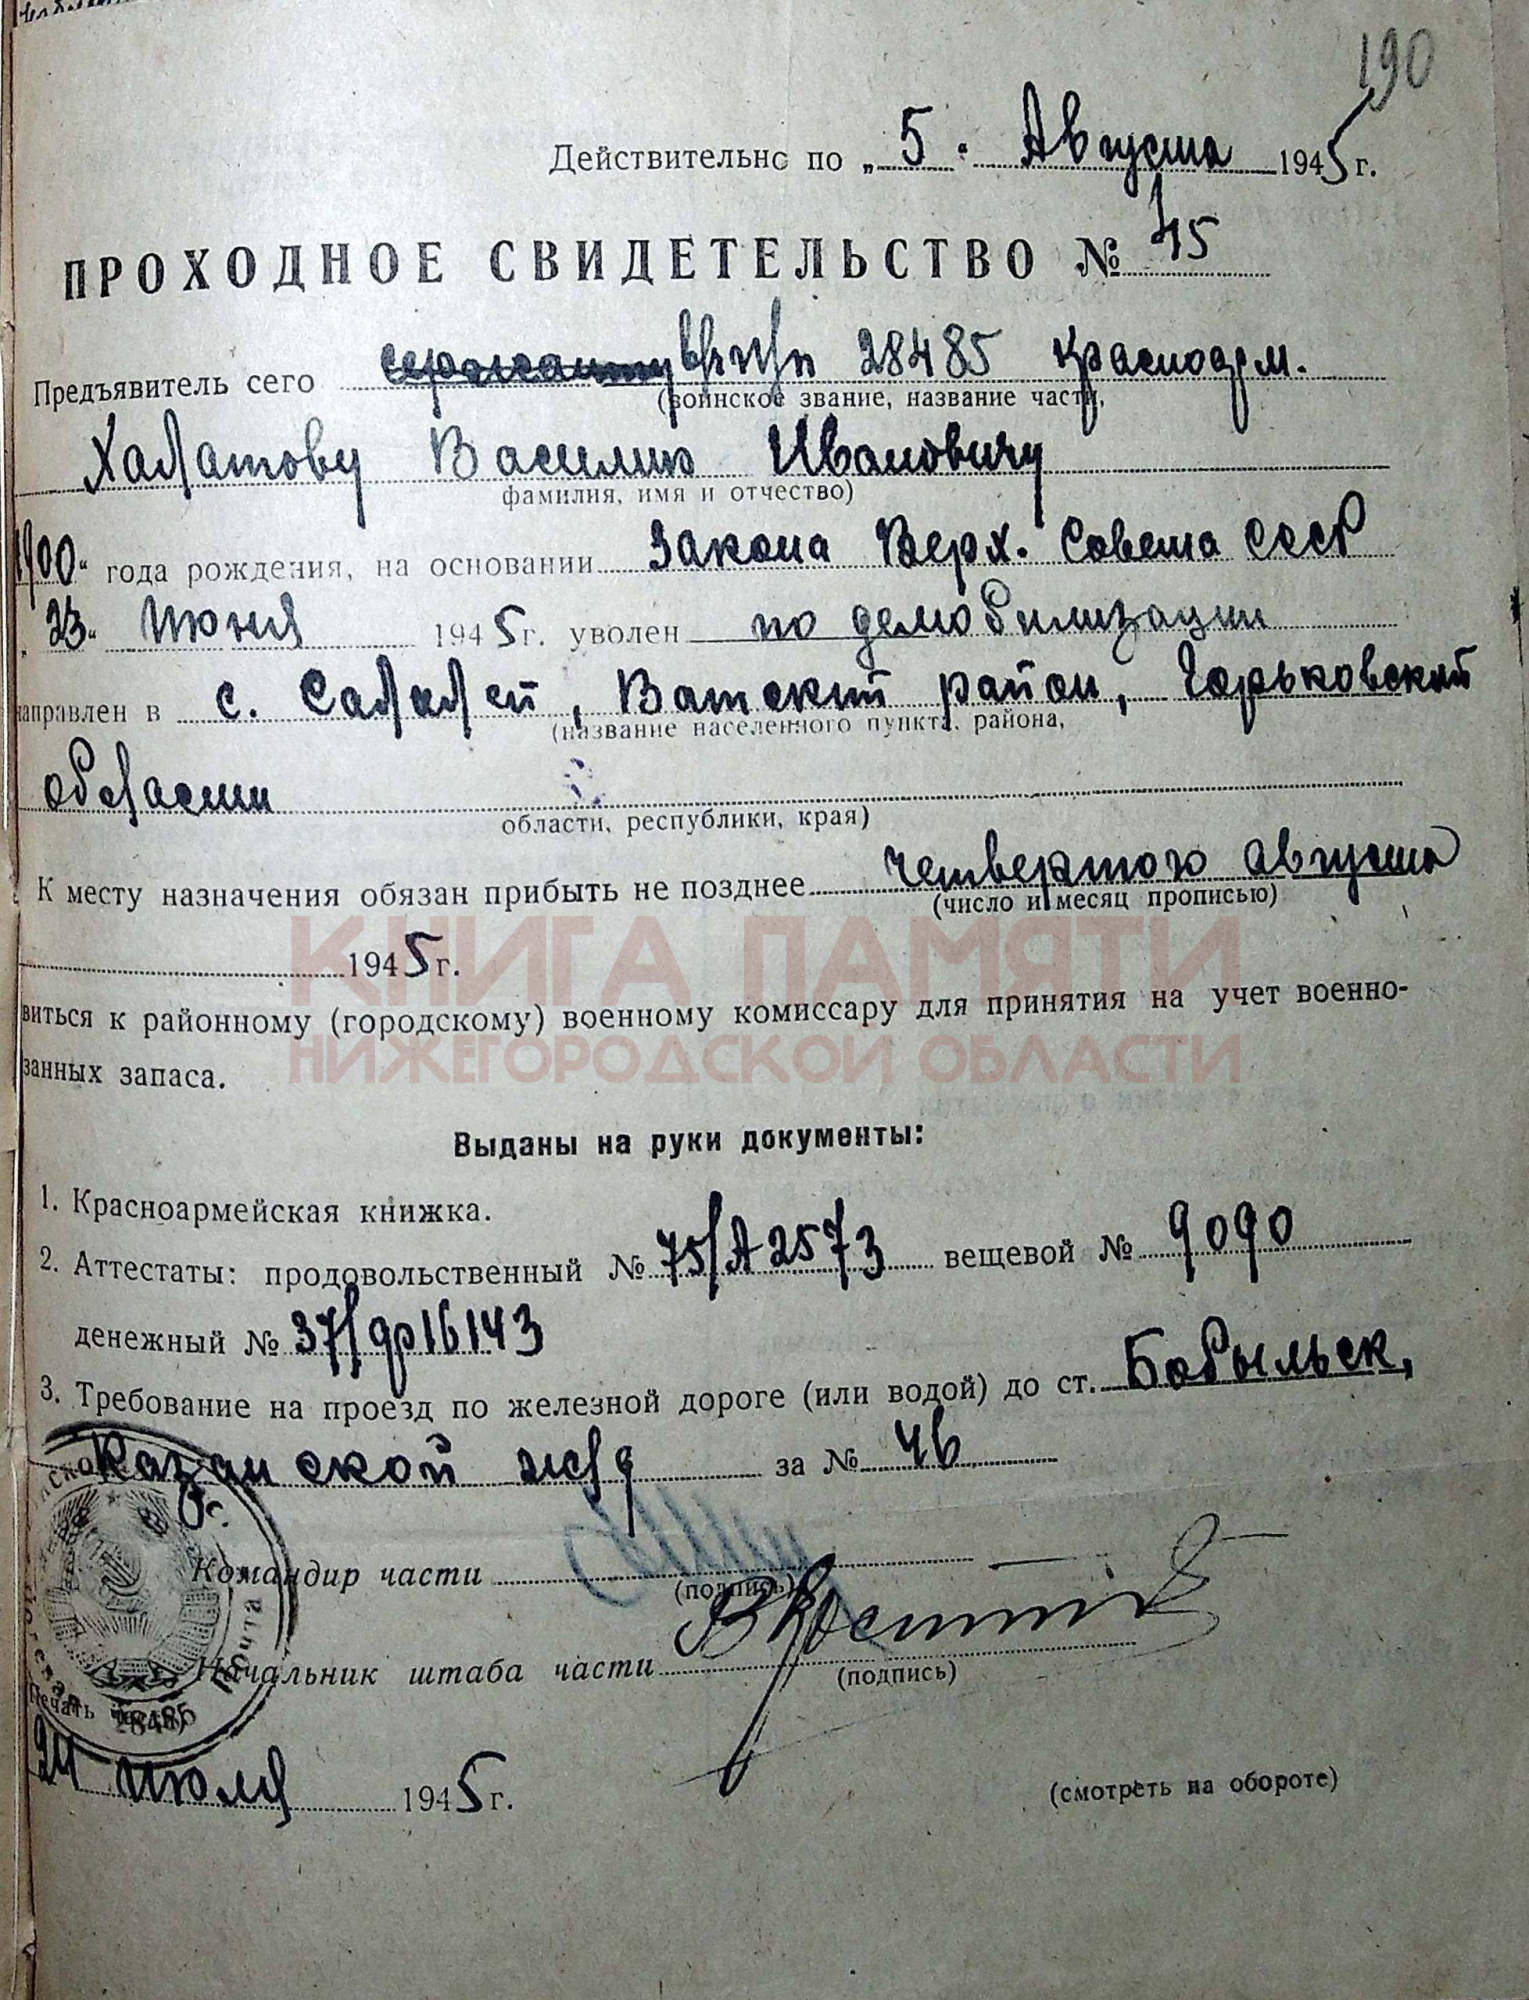 190
Действительно по „ 5 " Августа 1945 г.
ПРОХОДНОЕ СВИДЕТЕЛЬСТВО № 45
Предъявитель сего сержанту в/ч п/п 28485 Красноарм.
(воинское звание, название части,
Халатову Василию Ивановичу
фамилия, имя и отчество)
1900 " года рождения, на основании Закона Верх. Совета СССР
„ 23 " Июня 1945 г. уволен по демобилизации
направлен в с. Салалей, Ватский район, Горьковский
(название населенного пункта, района,
области
области, республики, края)
К месту назначения обязан прибыть не позднее четвертого августа
(число и месяц прописью)
1945 г.
КНИГА ПАМЯТИ
виться к районному (городскому) военному комиссару для принятия на учет военно-
НИЖЕГОРОДСКОЙ ОБЛАСТИ
занных запаса.
Выданы на руки документы:
1. Красноармейская книжка.
2. Аттестаты: продовольственный № 75/А2573 вещевой № 9090
денежный № 37/др16143
3. Требование на проезд по железной дороге (или водой) до ст. Бобыльск,
Казанской ж/д за № 46
Командир части
(подпись)
Начальник штаба части
(подпись)
Печать части)
28485
Почта
24 июля 1945 г.
(смотреть на обороте)